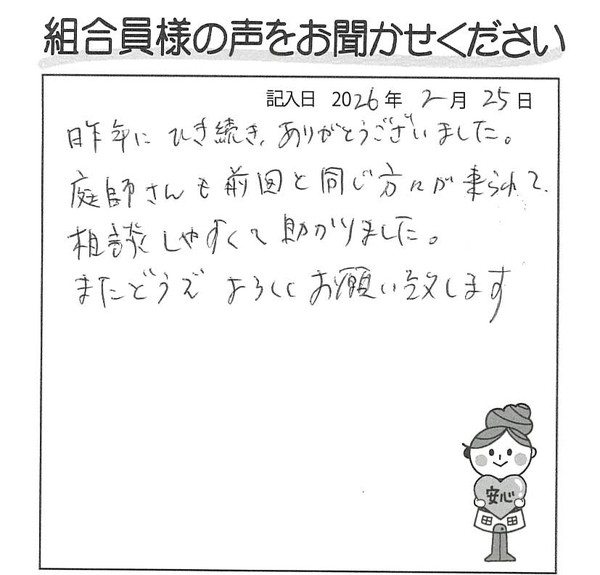 組合員様の声をお聞かせください
記入日 2026年 2月 25日
昨年にひき続き、ありがとうございました。
庭師さんも前回と同じ方々が来られて、
相談しやすくて助かりました。
またどうぞ よろしくお願い致します
安心